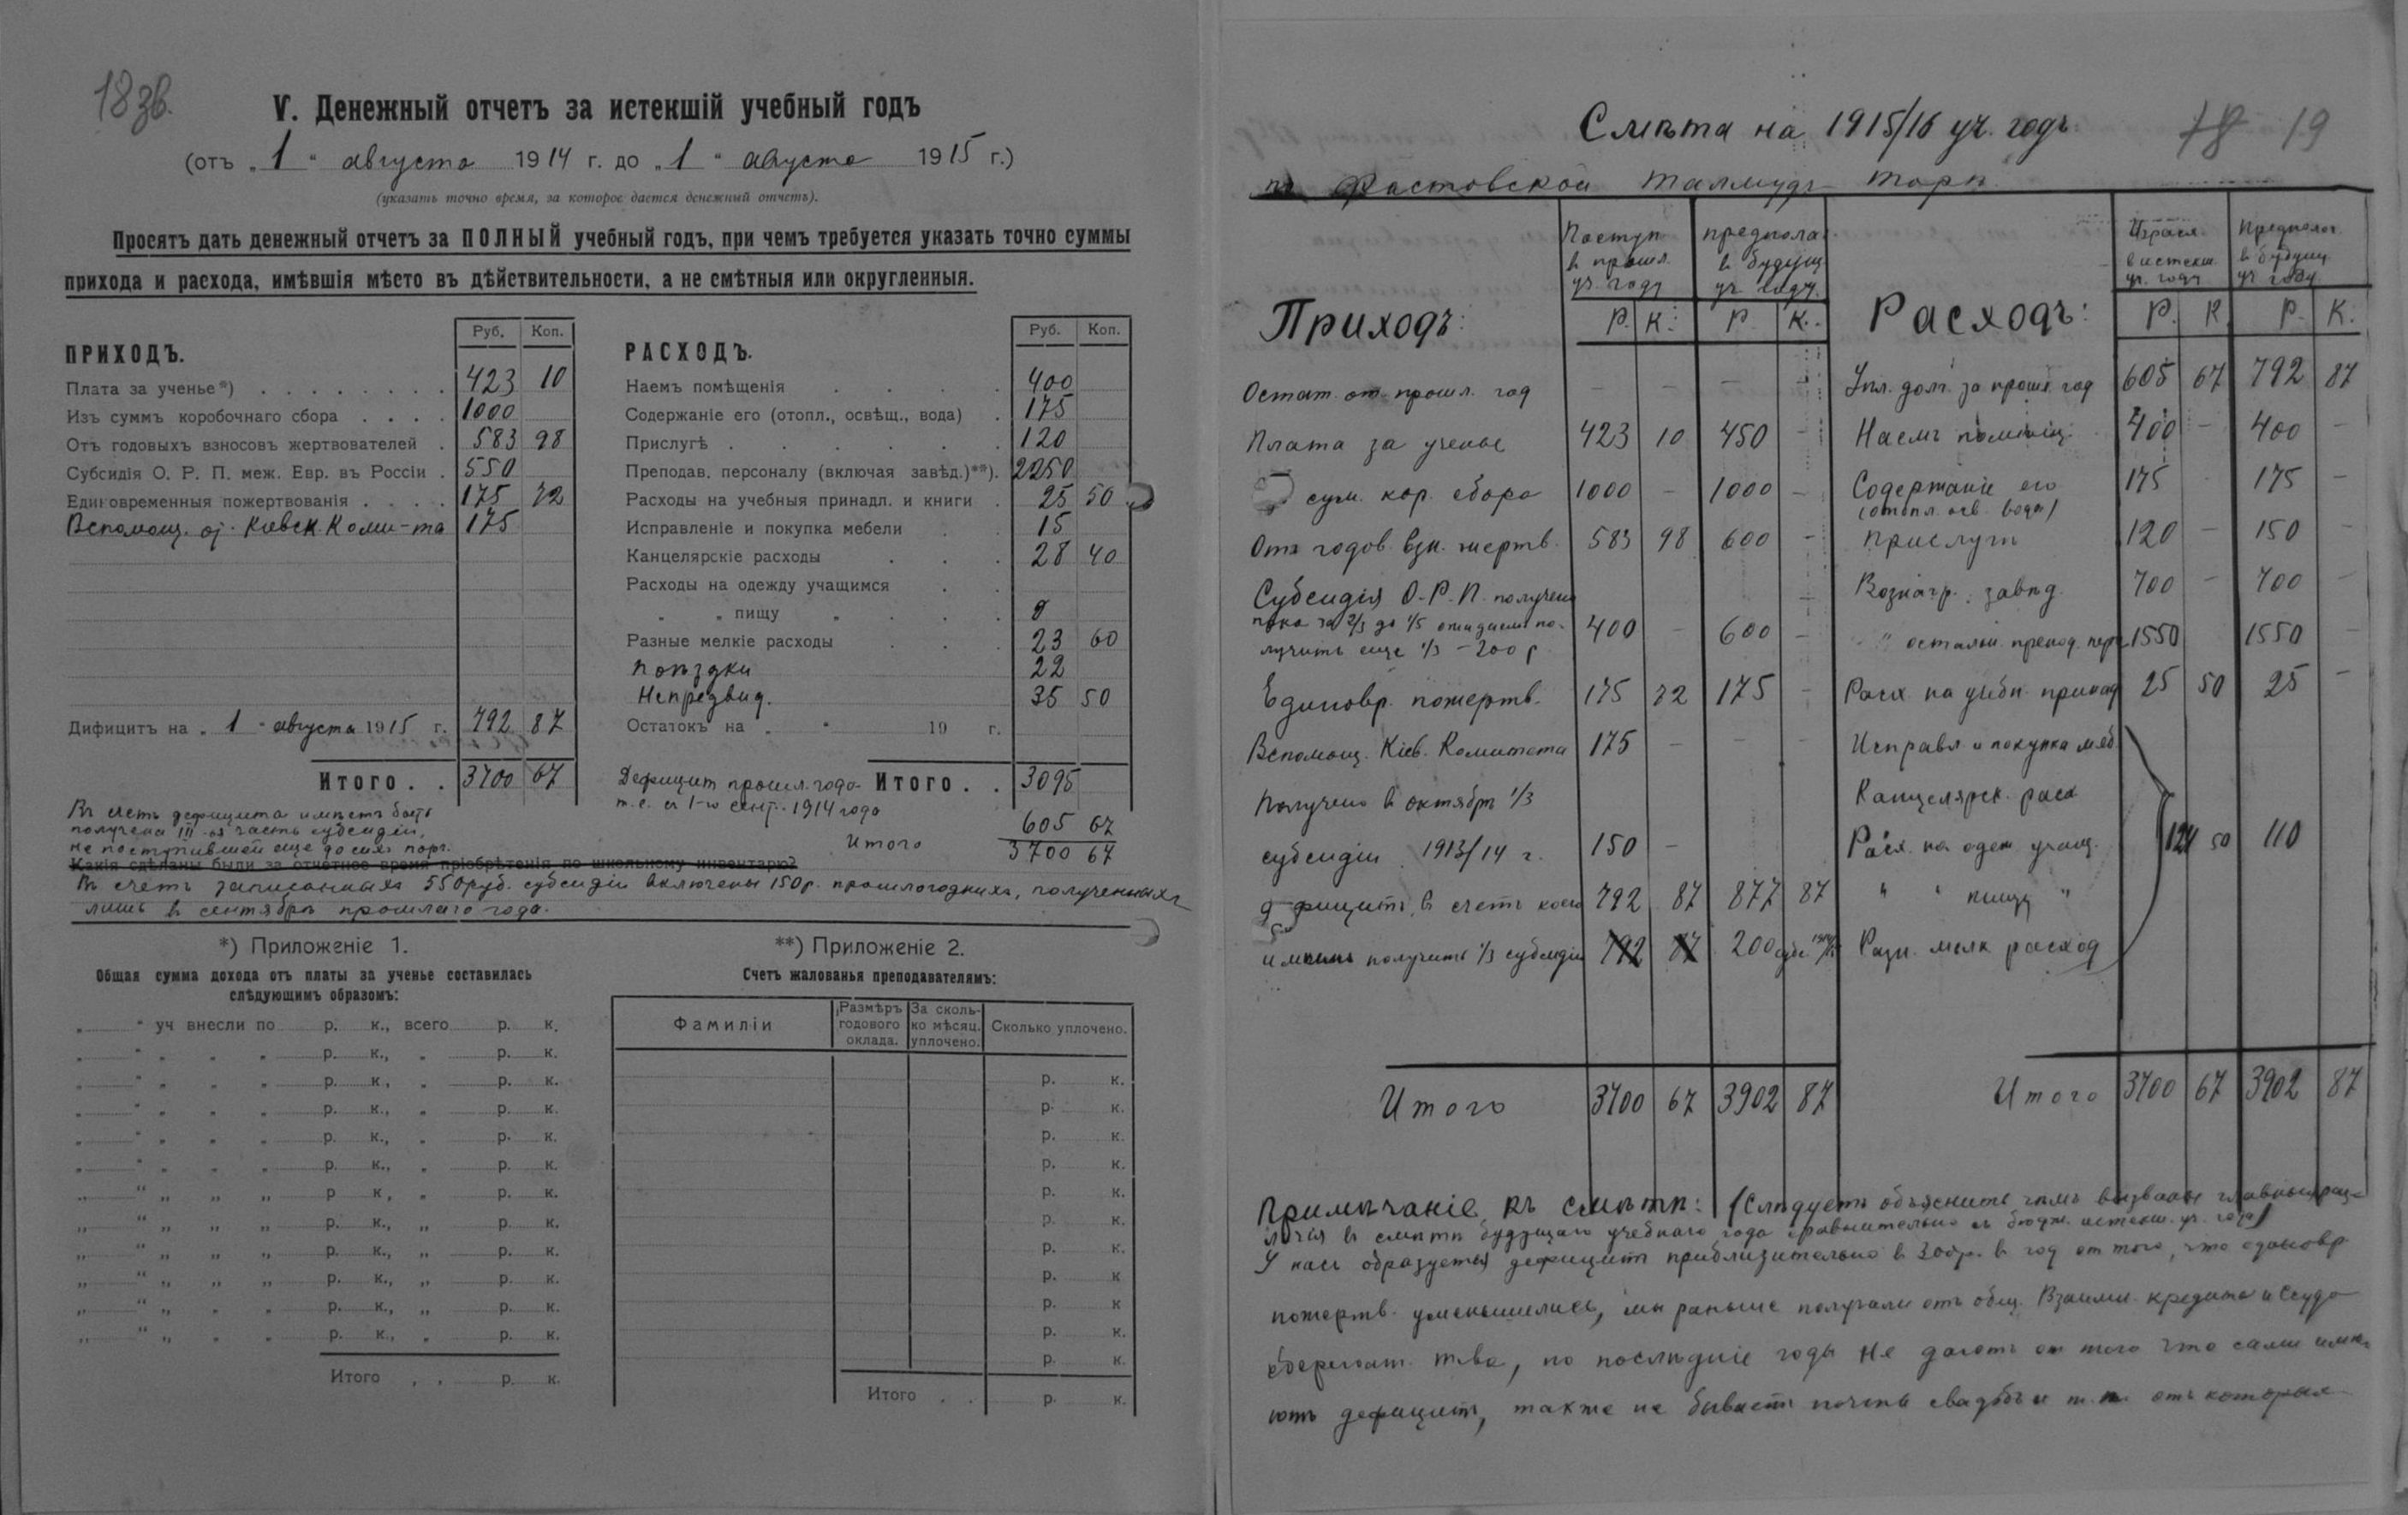 18 зв.
V. Денежный отчетъ за истекшій учебный годъ
(отъ „ 1 " августа 1914 г. до „ 1 " августа 1915 г.)
(указать точно время, за которое дается денежный отчетъ).
Просятъ дать денежный отчетъ за ПОЛНЫЙ учебный годъ, при чемъ требуется указать точно суммы
прихода и расхода, имѣвшія мѣсто въ дѣйствительности, а не смѣтныя или округленныя.
ПРИХОДЪ. Руб. Коп.
Плата за ученье*) 423 10
Изъ суммъ коробочнаго сбора 1000
Отъ годовыхъ взносовъ жертвователей 583 98
Субсидія О. Р. П. меж. Евр. въ Россіи 550
Единовременныя пожертвованія 175 72
Вспомощ. от Кіевск. Коми-та 175
Дифицитъ на „ 1 " августа 1915 г. 792 87
Итого . . 3700 67
Въ счетъ дефицита имѣетъ быть
получена III-ая часть субсидіи,
не поступившей еще до сихъ поръ.
РАСХОДЪ. Руб. Коп.
Наемъ помѣщенія 400
Содержаніе его (отопл., освѣщ., вода) 175
Прислугѣ 120
Преподав. персоналу (включая завѣд.)**). 2250
Расходы на учебныя принадл. и книги 25 50
Исправленіе и покупка мебели 15
Канцелярскіе расходы 28 40
Расходы на одежду учащимся
„ „ пищу „
Разные мелкіе расходы 23 60
Поѣздки 22
Непредвид. 35 50
Остатокъ на „ " 19 г.
Итого . . 3095
Дефицит прошл. года
т.е. съ 1-го сент. 1914 года 605 67
Итого 3700 67
Какія сдѣланы были за отчетное время пріобрѣтенія по школьному инвентарю?
Въ счетъ записанныхъ 550 руб. субсидіи включены 150 р. прошлогоднихъ, полученныхъ
лишь в сентябрѣ прошлаго года.
*) Приложеніе 1.
Общая сумма дохода отъ платы за ученье составилась
слѣдующимъ образомъ:
„ " уч внесли по р. к., всего р. к.
„ " „ „ „ р. к., „ р. к.
„ " „ „ „ р. к., „ р. к.
„ " „ „ „ р. к., „ р. к.
„ " „ „ „ р. к., „ р. к.
„ " „ „ „ р. к., „ р. к.
„ " „ „ „ р к, „ р. к.
„ " „ „ „ р. к., „ р. к.
„ " „ „ „ р. к., „ р. к.
„ " „ „ „ р. к., „ р. к.
„ " „ „ „ р. к., „ р. к.
„ " „ „ „ р. к., „ р. к.
Итого . . р. к.
**) Приложеніе 2.
Счетъ жалованья преподавателямъ:
Фамиліи Размѣръ годового оклада. За сколь-ко мѣсяц. уплочено. Сколько уплочено.
р. к.
р. к.
р. к.
р. к.
р. к.
р. к.
р. к.
р. к
р. к
р. к.
р. к.
Итого . . р. к.
Смѣта на 1915/16 уч. годъ.
18 19
по Фастовской Талмудъ-Торѣ
Приходъ:
Поступ. в прошл. уч. году Р. К.
предпола. в будущ. уч. году. Р. К.
Остат. от прошл. год – – – –
Плата за ученье 423 10 450 –
сум. кор. сбора 1000 – 1000 –
Отъ годов. взн. жертв. 583 98 600 –
Субсидія О.Р.П. получено
пока за 2/3 до 1/5 ожидаемъ по-
лучить еще 1/3 – 200 р 400 – 600 –
Единовр. пожертв. 175 72 175 –
Вспомощ. Кіев. Комитета 175 – – –
Получено в октябрѣ 1/3
субсидіи 1913/14 г. 150 –
дефицитъ, в счетъ коего 792 87 877 87
имѣемъ получить 1/3 субсидіи 792 87 200
Итого 3700 67 3902 87
Расходъ:
Израсх. в истекш. уч. году Р. К
Предполог. в будущ. уч году Р. К.
Упл. долг. за прошл. год 605 67 792 87
Наемъ помѣщ. 400 – 400 –
Содержаніе его 175 175 –
(отопл. осв. вода)
Прислугѣ 120 – 150 –
Вознагр. завѣд. 700 – 700 –
" остальн. препод. перс 1550 1550 –
Расх на учебн. принад 25 50 25 –
Исправл и покупка меб.
Канцелярск. расх
Расх. на одеж учащ. 124 50 110
" " пищу "
Разн. мелк расход
Итого 3700 67 3902 87
Примѣчаніе къ смѣтѣ: (Слѣдуетъ объяснить чѣмъ вызваны главныя раз-
личія в смѣтѣ будущаго учебнаго года сравнительно съ бюдж. истекш. уч. года)
У насъ образуется дефицитъ приблизительно в 300 р. в год от того, что одновр
пожертв. уменьшились, мы раньше получали отъ общ. Взаимн. кредита и Ссудо
сберегат. т-ва, но послѣдніе годы не даютъ от того что сами имѣ-
ютъ дефицит, также не бываетъ почти свадебъ и т. п. отъ которыхъ